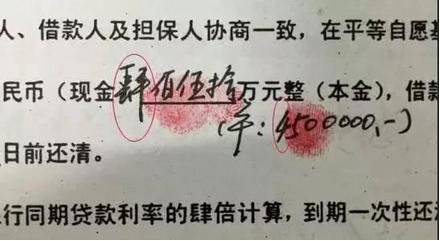 人、借款人及担保人协商一致，在平等自愿基
民币（现金肆佰伍拾万元整（本金），借款
（￥：4500000,-）
日前还清。
行同期贷款利率的肆倍计算，到期一次性还